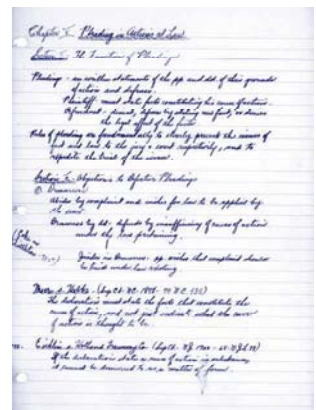 Chapter I. Pleading in Actions at Law
Section I. The Function of Pleading
Pleading - are written statements of the pp and def. of their grounds
of action and defenses.
Plaintiff: must state facts constituting his cause of action.
Defendant - denial, defense by stating new facts, or denies
the legal effect of the facts.
Rules of pleading are fundamentally to clearly present the issues of
fact and law to the jury + court respectively, and to
expedite the trial of the issues.
Section 2. Objections to Defective Pleadings
① Demurrer
Abides by complaint and wishes for law to be applied by
the court.
Demurrer by def. - defends by insufficiency of cause of action
under the law pertaining.
Joinder in Demurrer: pp wishes that complaint should
be tried under law
Moore v. Hobbs - (Sup Ct. N.C. 1878 - 79 N.C. 535)
The declaration must state the facts that constitute the
cause of action, and not just indicate what the cause
of action is thought to be.
v. Holland
If the declaration states a cause of action in substance,
it cannot be demurred to as a matter of form.